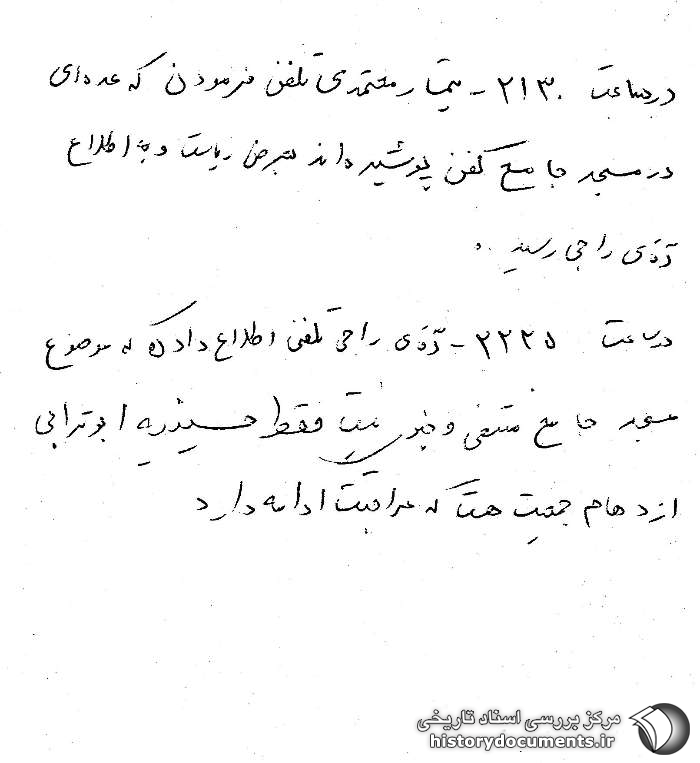 در ساعت ۲۱۳۰ - تیمسار معتمدی تلفن فرمودن که عده‌ای
در مسجد جامع کفن پوشیده‌اند بعرض ریاست و به اطلاع
آقای راجی رسید.
در ساعت ۲۲۲۵ - آقای راجی تلفنی اطلاع داد که موضوع
مسجد جامع منتفی و خبری نیست فقط حسینیه ابوترابی
ازدهام جمعیت هست که مراقبت ادامه دارد
مرکز بررسی اسناد تاریخی
historydocuments.ir